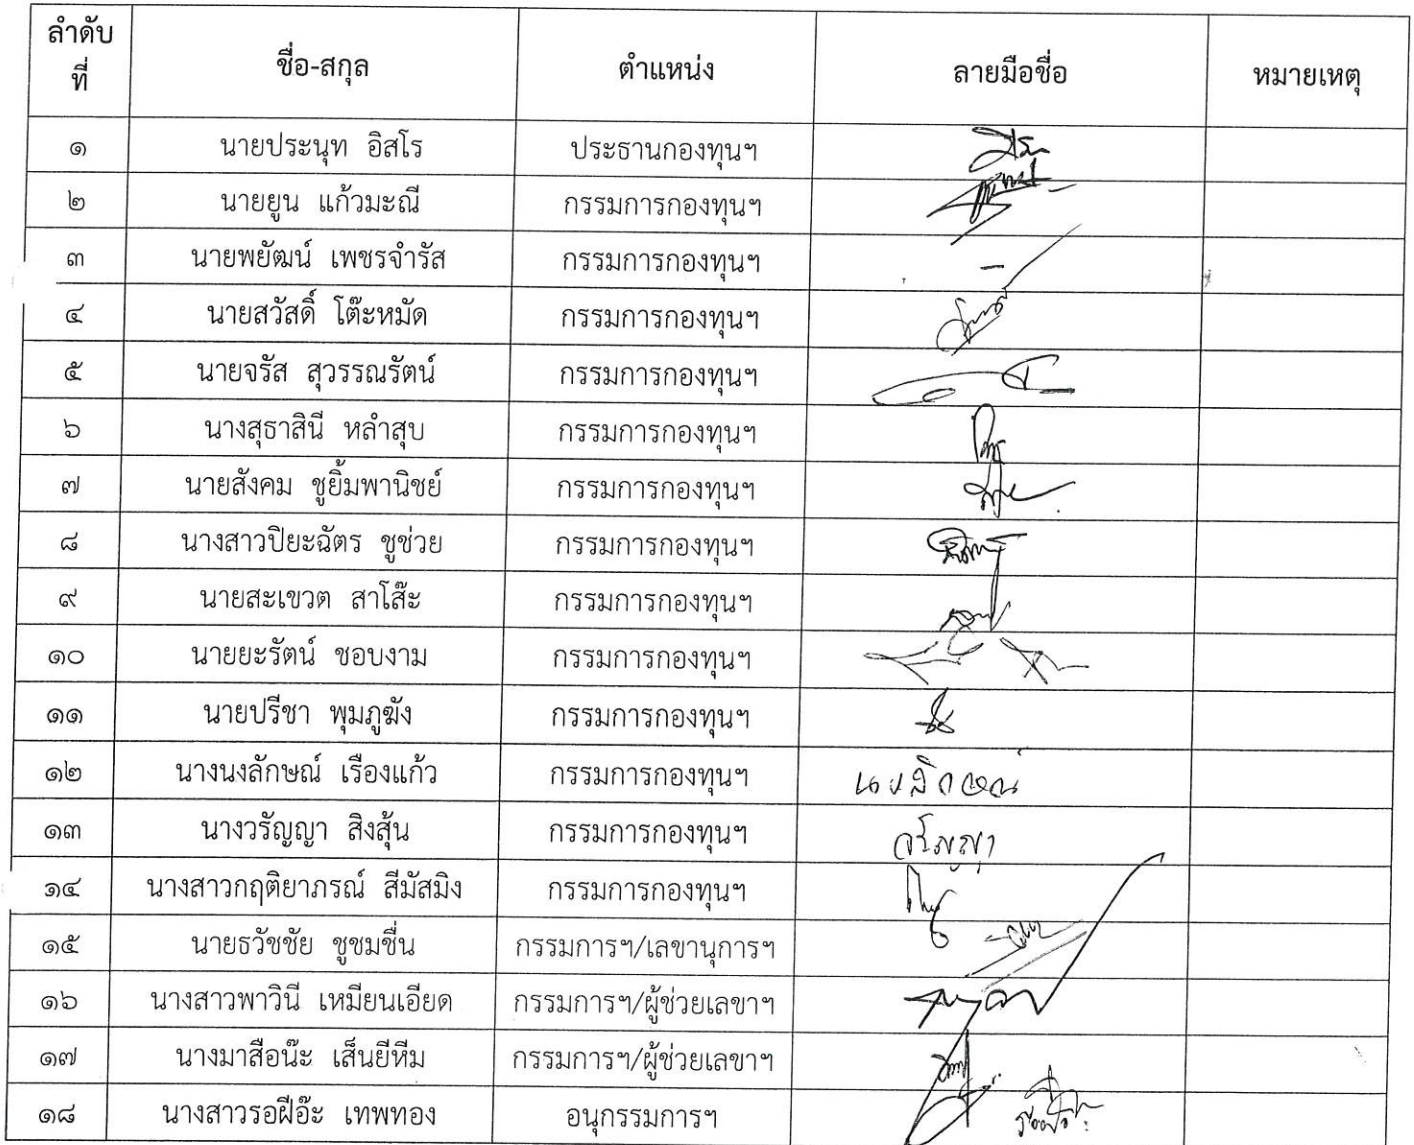 ลำดับ
ที่ ชื่อ-สกุล ตำแหน่ง ลายมือชื่อ หมายเหตุ
๑ นายประนุท อิสโร ประธานกองทุนฯ
๒ นายยูน แก้วมะณี กรรมการกองทุนฯ
๓ นายพยัฒน์ เพชรจำรัส กรรมการกองทุนฯ -
๔ นายสวัสดิ์ โต๊ะหมัด กรรมการกองทุนฯ
๕ นายจรัส สุวรรณรัตน์ กรรมการกองทุนฯ
๖ นางสุธาสินี หลำสุบ กรรมการกองทุนฯ
๗ นายสังคม ชูยิ้มพานิชย์ กรรมการกองทุนฯ
๘ นางสาวปิยะฉัตร ชูช่วย กรรมการกองทุนฯ
๙ นายสะเขวต สาโส๊ะ กรรมการกองทุนฯ
๑๐ นายยะรัตน์ ชอบงาม กรรมการกองทุนฯ
๑๑ นายปรีชา พุมภูฆัง กรรมการกองทุนฯ
๑๒ นางนงลักษณ์ เรืองแก้ว กรรมการกองทุนฯ นงลักษณ์
๑๓ นางวรัญญา สิงสุ้น กรรมการกองทุนฯ วรัญญา
๑๔ นางสาวกฤติยาภรณ์ สีมัสมิง กรรมการกองทุนฯ
๑๕ นายธวัชชัย ชูชมชื่น กรรมการฯ/เลขานุการฯ
๑๖ นางสาวพาวินี เหมียนเอียด กรรมการฯ/ผู้ช่วยเลขาฯ
๑๗ นางมาสือน๊ะ เส็นยีหีม กรรมการฯ/ผู้ช่วยเลขาฯ
๑๘ นางสาวรอฝีอ๊ะ เทพทอง อนุกรรมการฯ